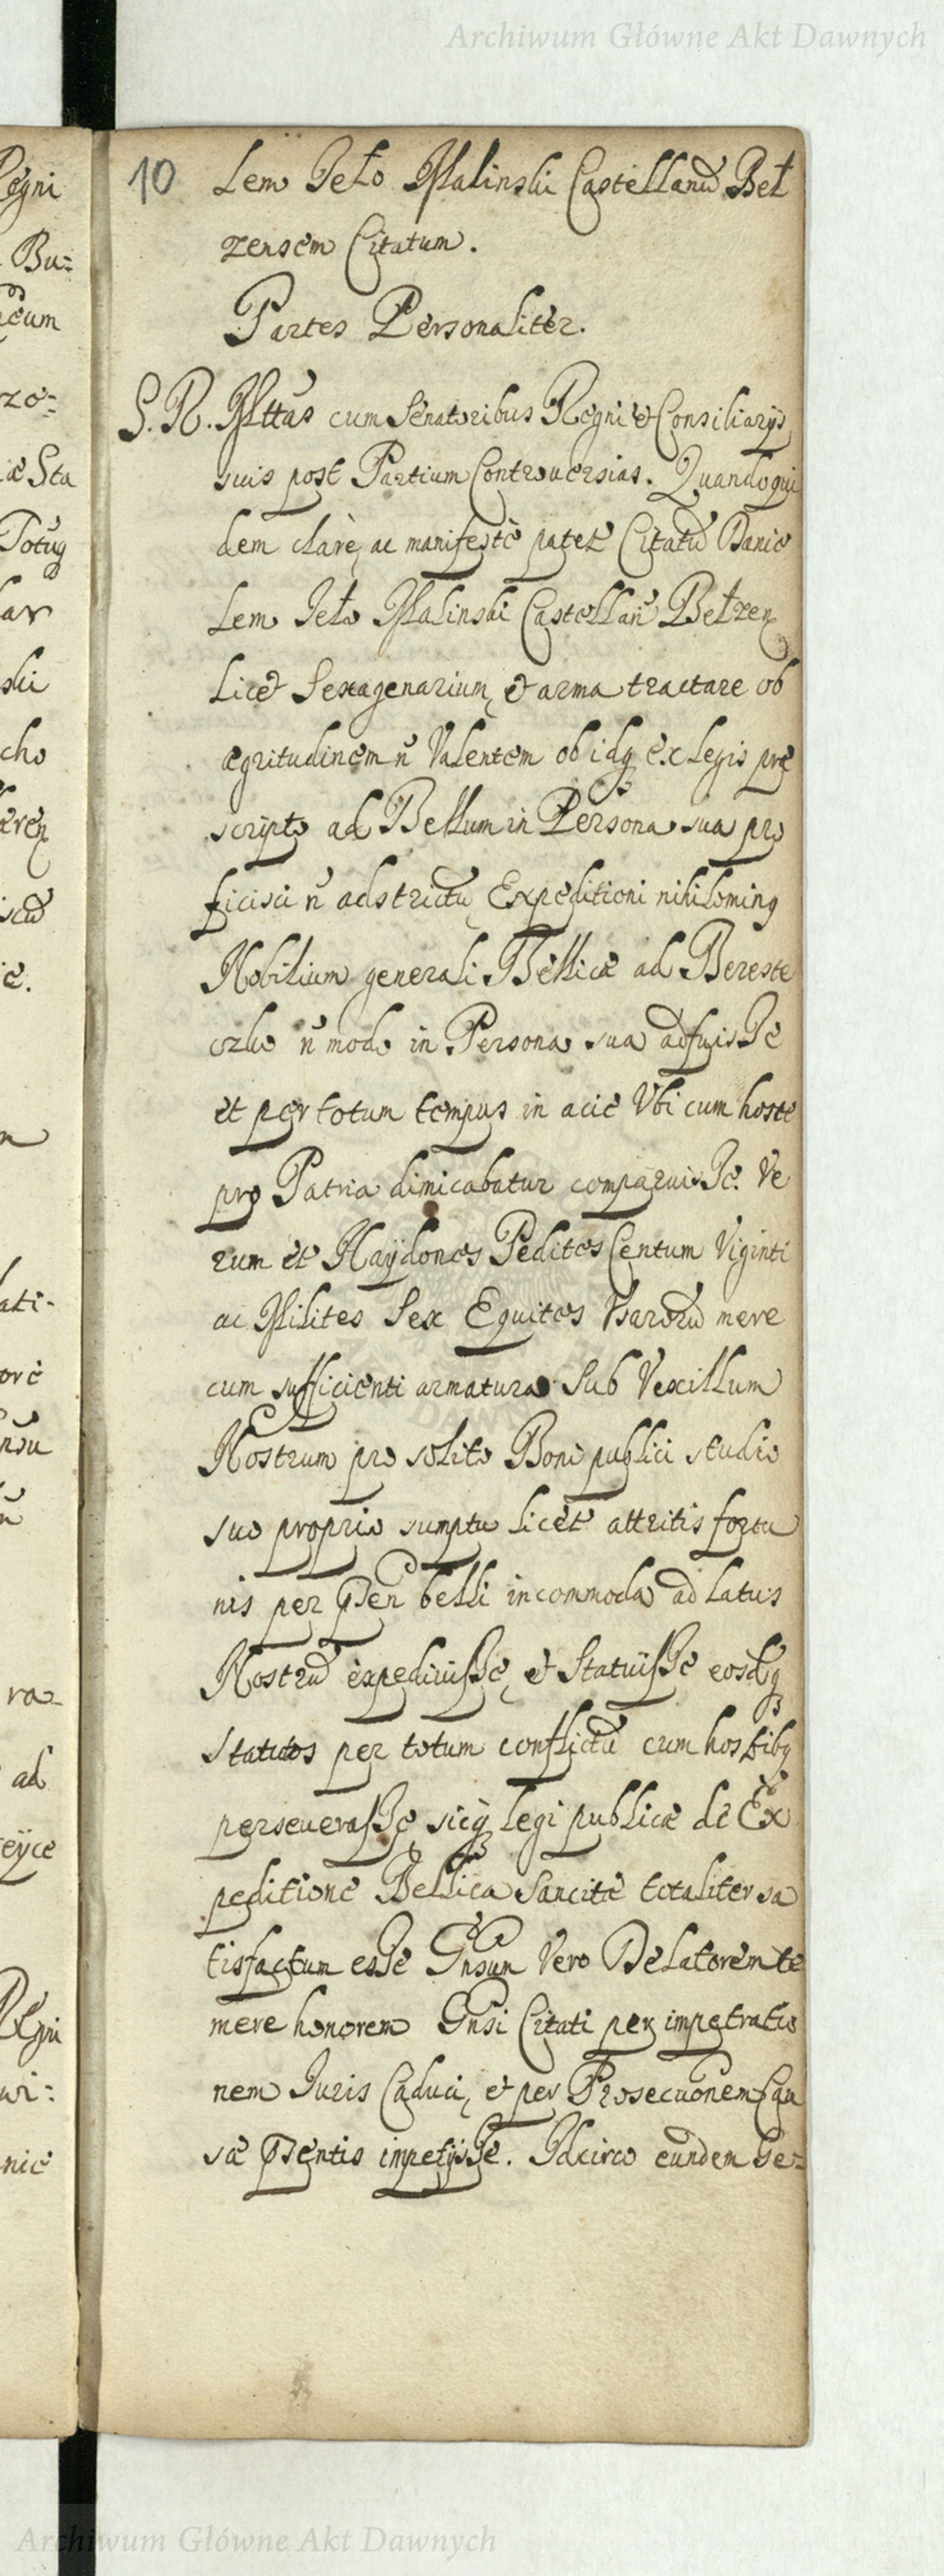 Archiwum Główne Akt Dawnych
10 Lem Jeło Malinski Castellanū Beł
zensem Citatum.
Partes Personaliter.
S. R. Mttas cum Senatoribus Regni et Consiliarijs
suis post Partium Controuersias. Quandoqui
dem clarè, ac manifestè patet Citatū Danie
Lem Jeło Malinski Castellan̄ Bełzen
Licet Sexagenarium, et arma tractare ob
ægritudinem n̄ Valentem ob idq ex Legis præ
scripto ad Bellum in Persona sua pro
ficisci n̄ adstrictū, Expeditioni nihilominq
Nobilium generali Bellicæ ad Bereste
czko n̄ modo in Persona sua adfuisse
et per totum tempus in acie Vbi cum hoste
pro Patria dimicabatur comparuisse. Ve
rum et Haÿdones Pedites Centum Viginti
ac Milites Sex Equites Vsarorū mere
cum sufficienti armatura Sub Vexillum
Nostrum pro solito Boni publici studio
suo proprio sumptu licèt attritis fortu
nis per belli incommoda ad Latus
Nostrū expediuisse, et Statuisse eosdq
statutos per totum conflictū cum hostibq
perseuerasse, sicq Legi publicæ de Ex
peditione Bellica Sancitæ totaliter sa
tisfactum esse Gnsum Vero Delatorem te
mere honorem Gnsi Citati per impetratio
nem Juris Caduci, et per Prosecuōnem Cau
sæ impetijsse. Idcirco eundem De-
Archiwum Główne Akt Dawnych